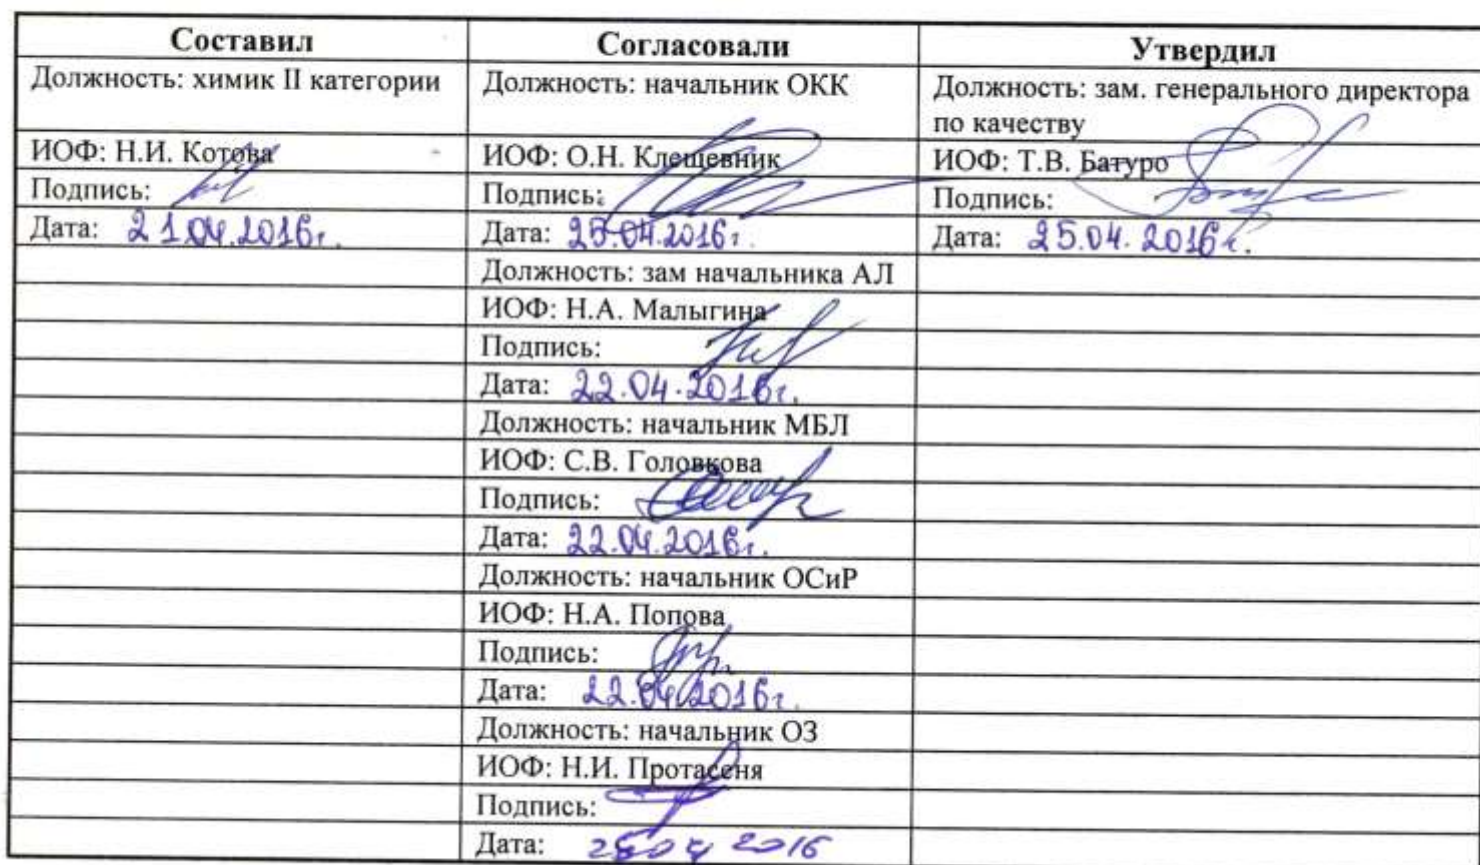 Составил Согласовали Утвердил
Должность: химик II категории Должность: начальник ОКК Должность: зам. генерального директора
по качеству
ИОФ: Н.И. Котова ИОФ: О.Н. Клещевник ИОФ: Т.В. Батуро
Подпись: Подпись: Подпись:
Дата: 21.04.2016г. Дата: 25.04.2016г. Дата: 25.04.2016г.
Должность: зам начальника АЛ
ИОФ: Н.А. Малыгина
Подпись:
Дата: 22.04.2016г.
Должность: начальник МБЛ
ИОФ: С.В. Головкова
Подпись:
Дата: 22.04.2016г.
Должность: начальник ОСиР
ИОФ: Н.А. Попова
Подпись:
Дата: 22.04.2016г.
Должность: начальник ОЗ
ИОФ: Н.И. Протасеня
Подпись:
Дата: 2016